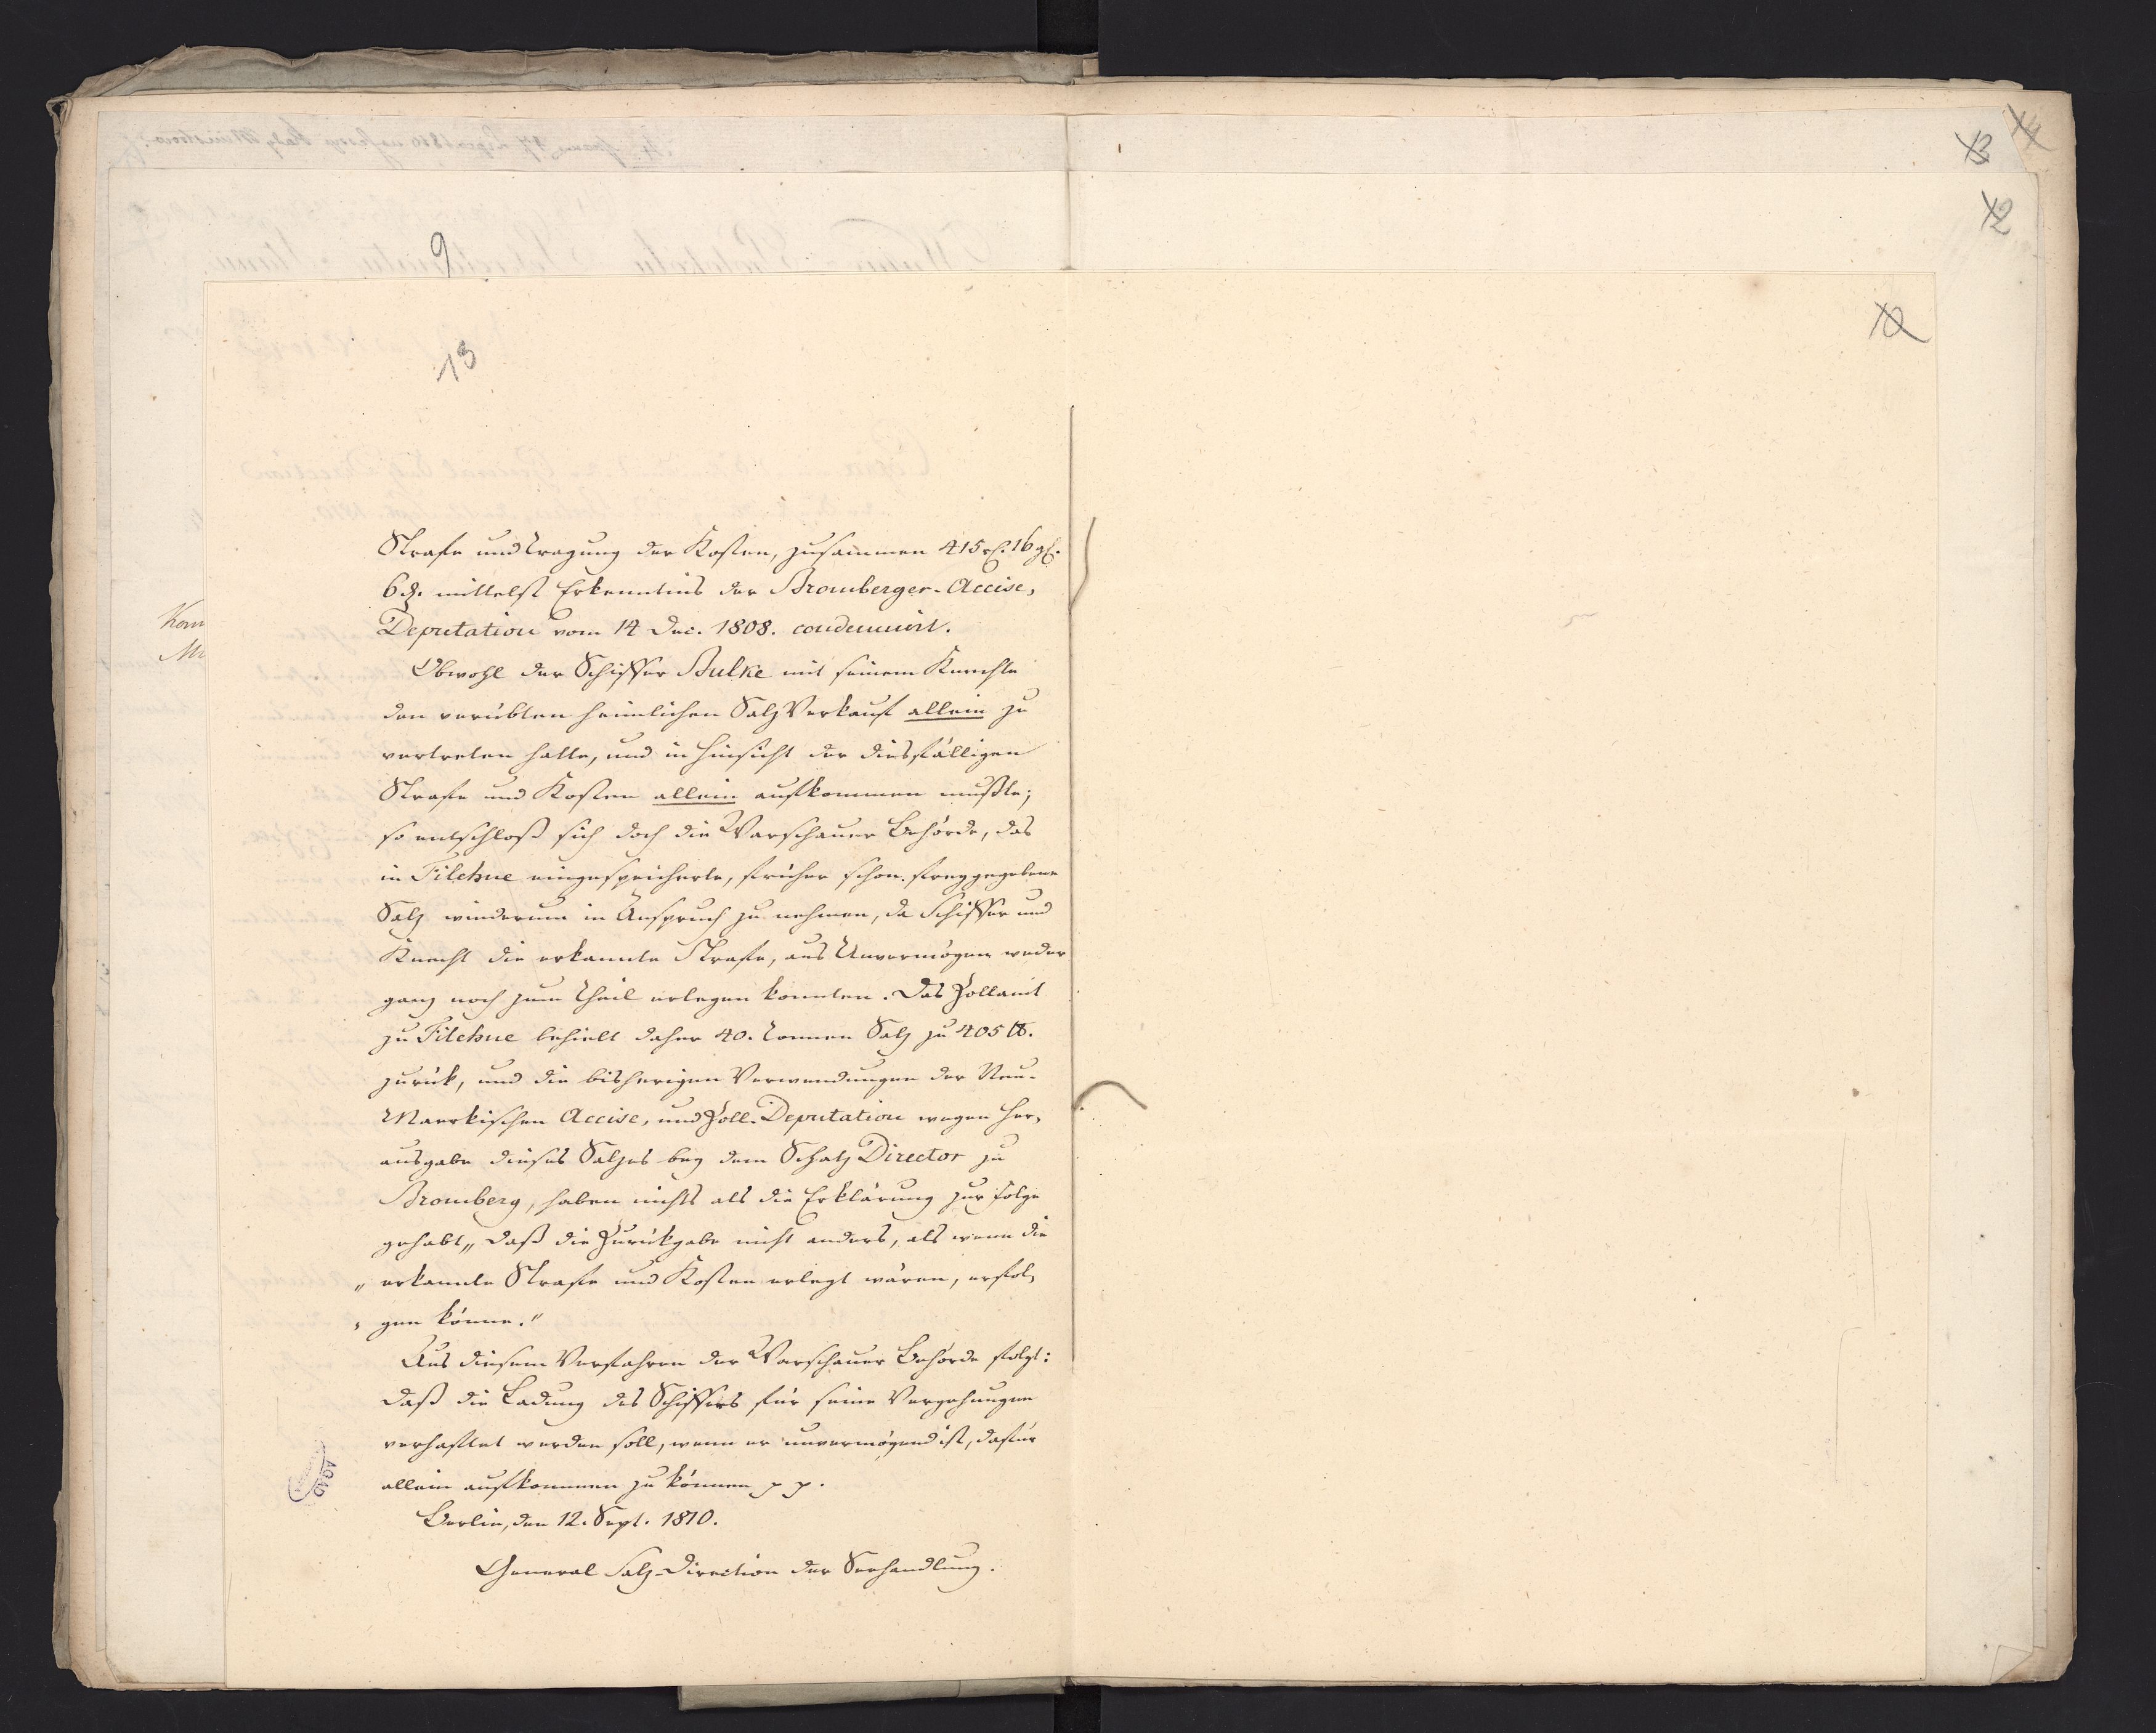 13
12
9
10
13
Strafe und Tragung der Kosten, zusammen 415 rf. 16 gf.
6 ₰. mittelst Erkenntnis der Bromberger-Accise-
Deputation vom 14 Dec. 1808. condemnirt.
Obwohl der Schiffer Bulke mit seinem Knechte
den verübten heimlichen Salz Verkauf allein zu
vertreten hatte, und in Hinsicht der diesfälligen
Strafe und Kosten allein aufkommen mußte;
so entschloß sich doch die Warschauer Behörde, das
in Filehne eingespeicherte, früher schon freygegebene
Salz wiederum in Anspruch zu nehmen, da Schiffer und
Knecht die erkannte Strafe, aus Unvermögen weder
ganz noch zum Theil erlegen konnten. Das Zollamt
zu Filehne behielt daher 40. Tonnen Salz zu 405 ℔.
zurük, und die bisherigen Verwendungen der Neu-
Maerkischen Accise, und Zoll-Deputation wegen Her-
ausgabe dieses Salzes bey dem Schatz Director zu
Bromberg, haben nichts als die Erklärung zur Folge
gehabt „daß die Zurükgabe nicht anders, als wenn die
„erkannte Strafe und Kosten erlegt wären, erfol-
„gen könne."
Aus diesem Verfahren der Warschauer Behörde folgt:
daß die Ladung des Schiffers für seine Vergehungen
verhaftet werden soll, wenn er unvermögend ist, dafür
allein aufkommen zu können p p.
Berlin, den 12. Sept. 1810.
General Salz-Direction der Seehandlung.
Kom
AGAD